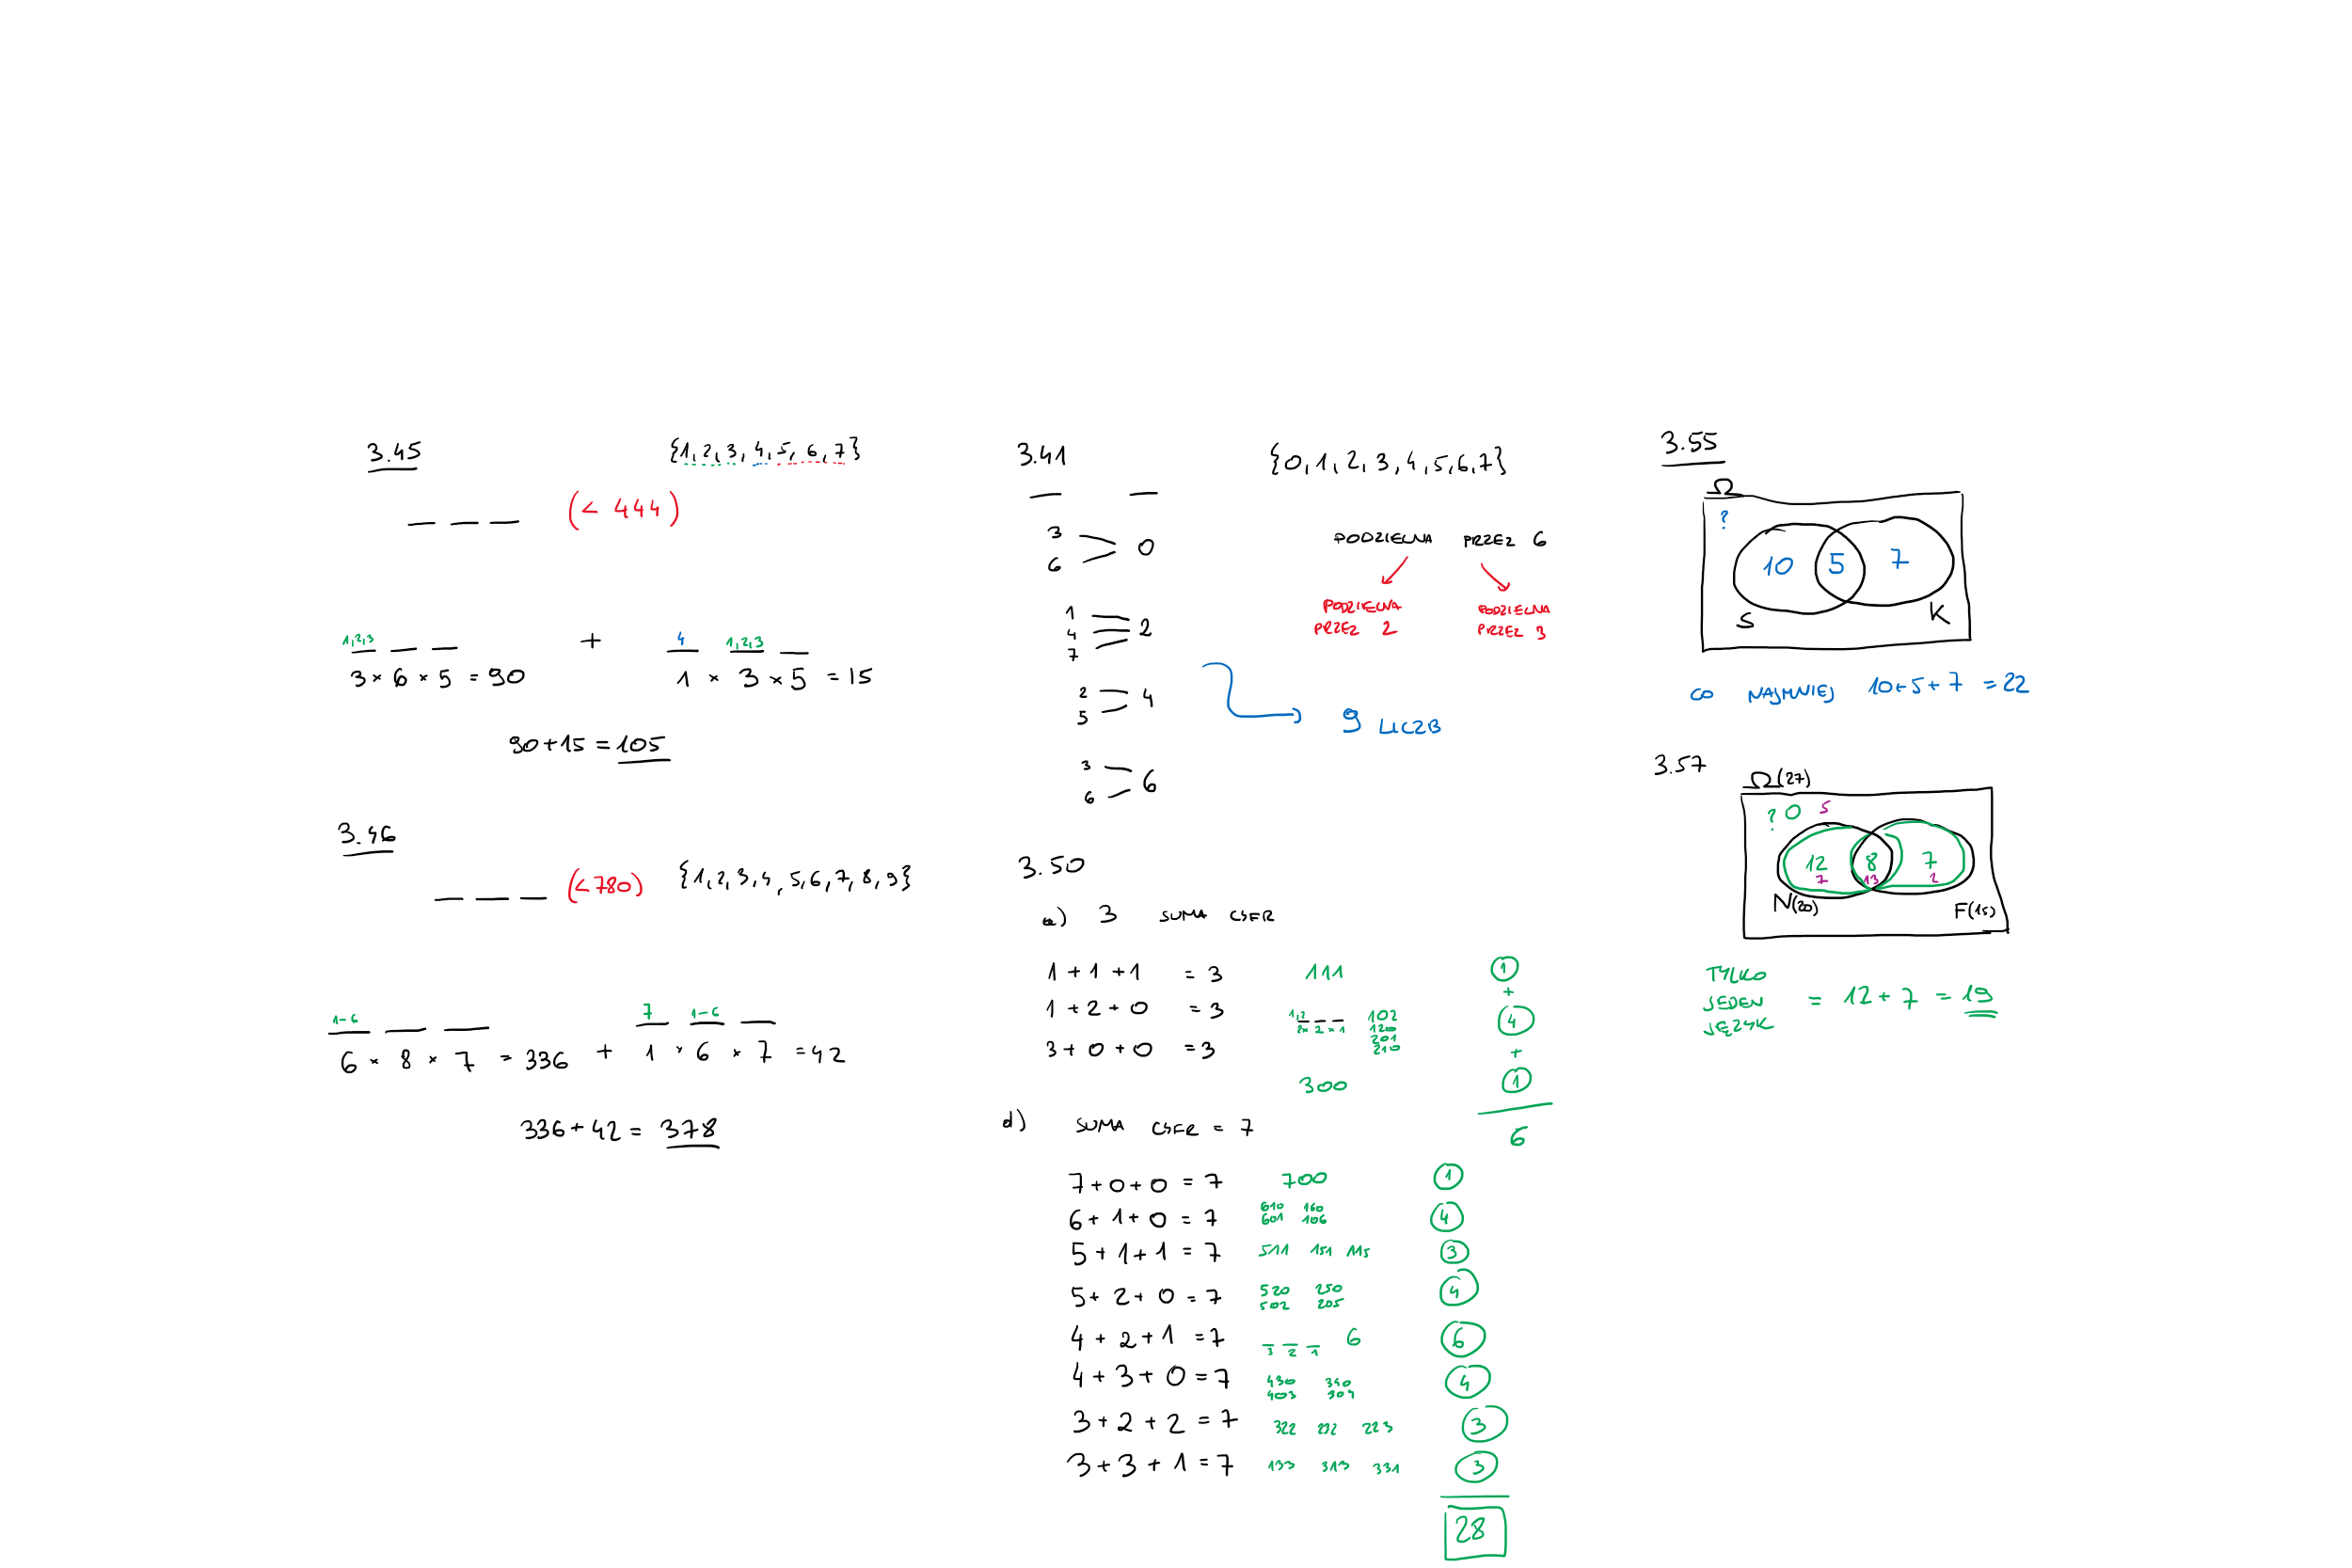 3.45
{1,2,3,4,5,6,7}
(< 444)
1,2,3
+
4 1,2,3
3 × 6 × 5 = 90
1 × 3 × 5 = 15
90+15 = 105
3.46
(<780) {1,2,3,4,5,6,7,8,9}
1-6
7 1-6
6 × 8 × 7 = 336 + 1 × 6 × 7 = 42
336+42 = 378
3.41
{0,1,2,3,4,5,6,7}
3
6
0
1
4
7
2
2
5
4
3
6
6
PODZIELNA PRZEZ 6
PODZIELNA
PRZEZ 2
PODZIELNA
PRZEZ 3
9 LICZB
3.50
a) 3 SUMA CYFR
1 + 1 + 1 = 3 111 1
+
1 + 2 + 0 = 3 1,2 102 4
2× 2 × 1 120
201
210
3 + 0 + 0 = 3
+
300 1
6
d) SUMA CYFR = 7
7 + 0 + 0 = 7 700 1
6 + 1 + 0 = 7 610 160 4
601 106
5 + 1 + 1 = 7 511 151 115 3
5 + 2 + 0 = 7 520 250 4
502 205
4 + 2 + 1 = 7 3 2 1 6 6
4 + 3 + 0 = 7 430 340 4
403 304
3 + 2 + 2 = 7 322 232 223 3
3 + 3 + 1 = 7 133 313 331 3
28
3.55
Ω
?
10 5 7
S K
CO NAJMNIEJ 10+5+7 = 22
3.57
Ω(27)
? 0 5
12 8 7
7 13 2
N(20)
F(15)
TYLKO
JEDEN = 12 + 7 = 19
JĘZYK